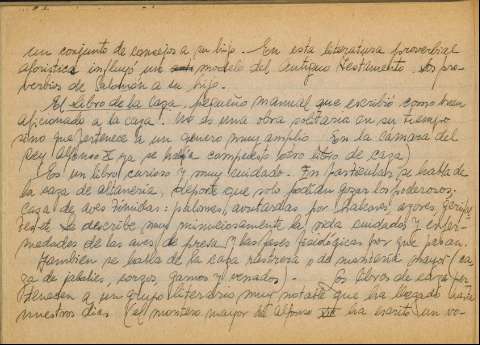 un conjunto de consejos a su hijo. En esta literatura proverbial
aforística influyó un modelo del Antiguo Testamento. Los pro-
verbios de Salomón a su hijo.
El libro de la caza, pequeño manual que escribió como buen
aficionado a la caza. No es una obra solitaria en su tiempo
sino que pertenece a un género muy amplio. En la cámara del
Rey Alfonso X ya se había compuesto otro libro de caza)
Es un libro curioso y muy cuidado. En particular se habla de
la caza de altanería, deporte que solo podían gozar los poderosos;
caza de aves tímidas: palomas, avutardas por halcones, azores, gerifal
tes etc. Se describe muy minuciosamente la vida cuidados y enfer-
medades de las aves de presa y las fases fisiológicas por que pasan.
También se habla de la caza rastrera o de montería mayor (ca
za de jabalíes, corzos, gamos y venados). Los libros de caza per
tenecen a un grupo literario muy notable que ha llegado hasta
nuestros días. (el montero mayor de Alfonso XIII ha escrito un vo-